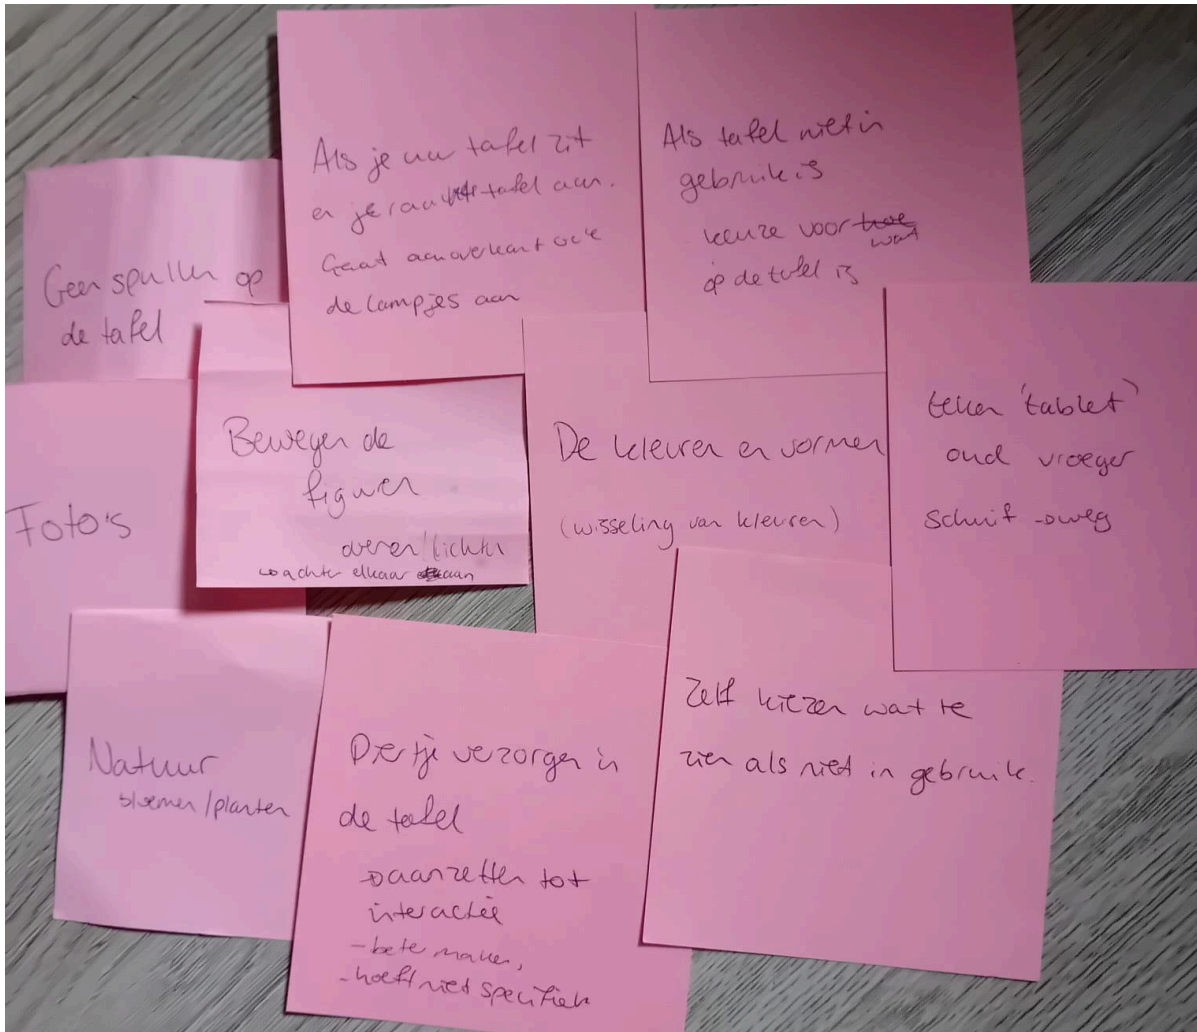 Als je aan tafel zit
en je raakt tafel aan.
Gaat aan overkant ook
de lampjes aan
Als tafel niet in
gebruik is
keuze voor hoe
wat
op de tafel is
Geen spullen op
de tafel
Bewegen de
figuren
dieren/lichten
achter elkaar aan
De kleuren en vormen
(wisseling van kleuren)
teken 'tablet'
oud vroeger
schuif → weg
Foto's
Natuur
bloemen/planten
Diertje verzorgen in
de tafel
→ aanzetten tot
interactie
- beter maken,
- hoeft niet specifiek
Zelf kiezen wat te
zien als niet in gebruik.